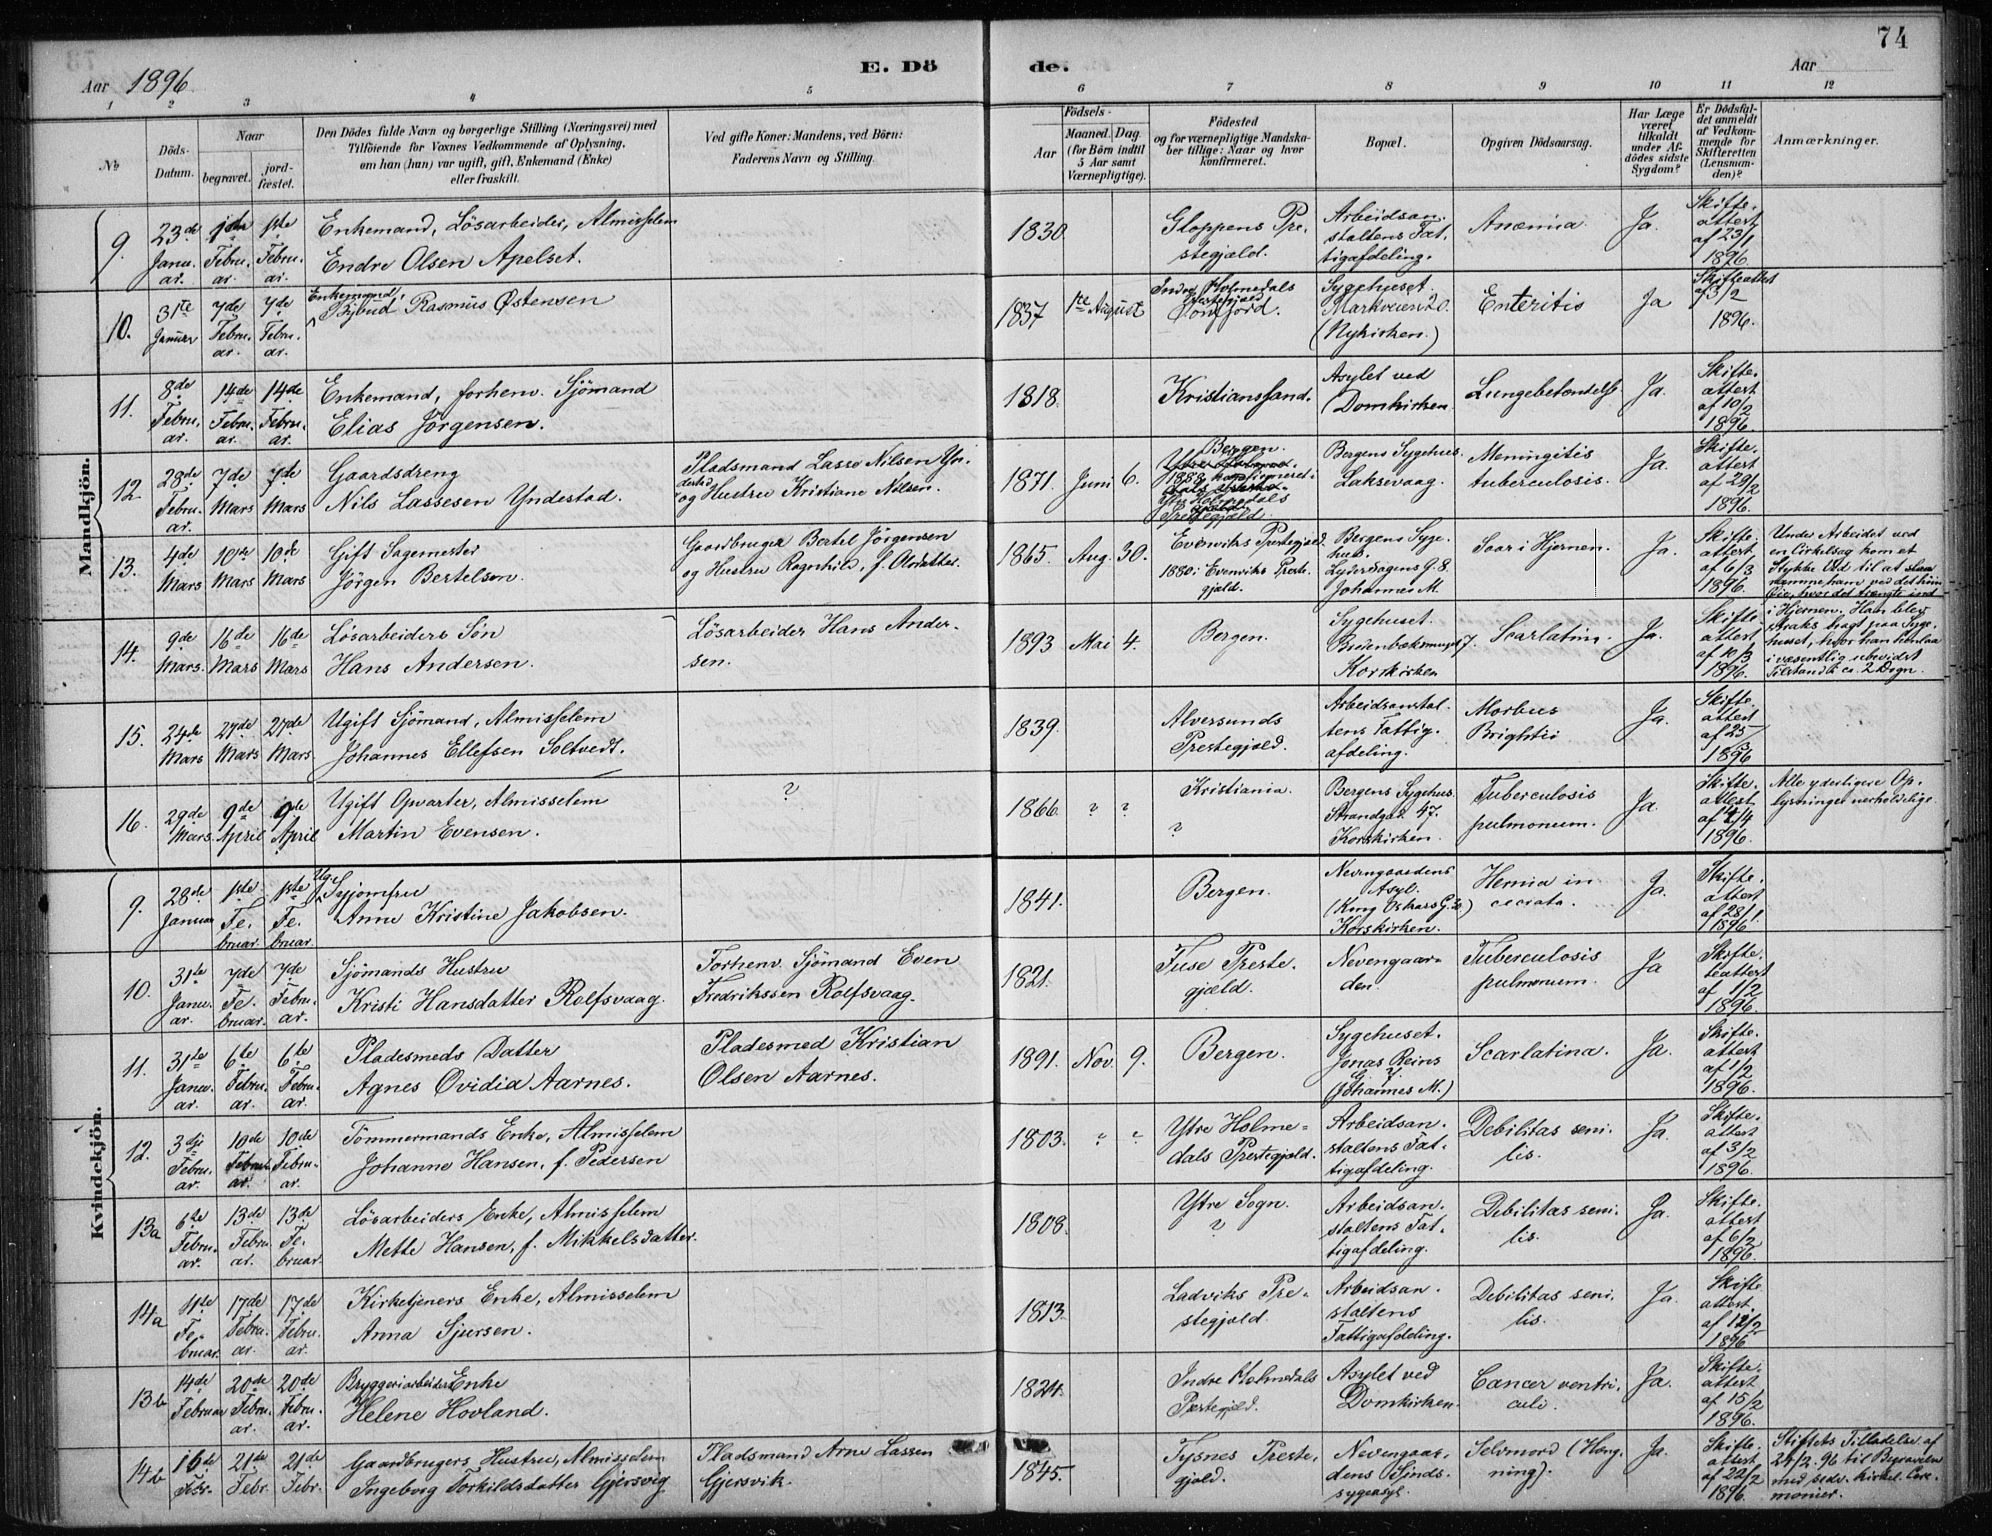 74
Aar 1896
E. Dö
de.
Aar
1 2 3 4 5 6 7 8 9 10 11 12
№
Döds-
Datum.
Naar
begravet.
jord-
fæstet.
Den Dödes fulde Navn og borgerlige Stilling (Næringsvei) med
Tilföiende for Voxnes Vedkommende af Oplysning,
om han (hun) var ugift, gift, Enkemand (Enke)
eller fraskilt.
Ved gifte Koner: Mandens, ved Börn:
Faderens Navn og Stilling.
Födsels-
Aar
Maaned. Dag.
(for Börn indtil
5 Aar samt
Værnepligtige).
Födested
og for værnepligtige Mandska-
ber tillige: Naar og hvor
konfirmeret.
Bopæl.
Opgiven Dödsaarsag.
Har Læge
været
tilkaldt
under Af-
dödes sidste
Sygdom?
Er Dödsfal-
det anmeldt
af Vedkom-
mende for
Skifteretten
(Lensman-
den)?
Anmærkninger.
Mandkjön.
9.
23de
Janu-
ar.
1ste
Febru-
ar.
1ste
Febru-
ar.
Enkemand, Lösarbeider, Almisselem
Endre Olsen Apelset.
1830.
Gloppens Pre-
stegjæld.
Arbeidsan-
staltens Fat-
tigafdeling.
Anæmia.
Ja.
Skifte-
attest
af 23/1
1896.
10.
31te
Januar
7de
Febru-
ar.
7de
Febru-
ar.
Enkemand,
Bybud Rasmus Østensen
1837 1ste August
Indre Holmedals
Prestegjæld
Sygehuset.
Markveien 20.
(Nykirken.)
Enteritis
Ja
Skifteattest
af 3/2
1896.
11.
8de
Febru-
ar.
14de
Febru-
ar.
14de
Febru-
ar.
Enkemand, forhenv. Sjömand
Elias Jörgensen.
1818.
Kristianssand.
Asylet ved
Domkirken.
Lungebetændelse
Ja.
Skifte-
attest
af 10/2
1896.
12.
28de
Febru-
ar.
7de
Mars
7de
Mars
Gaardsdreng
Nils Lassesen Yndestad.
Pladsmand Lasse Nilsen Yn-
destad
og Hustru Kristiane Nilsen.
1871. Juni 6.
Bergen.
1888 konfirmeret i
Ytre Holmedals
Prestegjæld.
Bergens Sygehus.
Laksevaag.
Meningitis
tuberculosis.
Ja.
Skifte-
attest
af 29/2
1896.
13.
4de
Mars
10de
Mars
10de
Mars
Gift Sagmester
Jörgen Bertelsen.
Gaardbruger Bertel Jörgensen
og Hustru Ragnhild, f. Olsdatter.
1865. Aug. 30.
Evenviks Prestegjæld.
1880 i Evenviks Preste-
gjæld.
Bergens Syge-
hus.
Lyder Sagens G. 8.
Johannes M.
Saar i Hjernen.
Ja.
Skifte-
attest
af 6/3
1896.
Under Arbeidet ved
en Cirkelsag kom et
Stykke Ved til at
ramme ham ved det höire
Öie, hvor det trængte ind
i Hjernen. Han blev
straks bragt paa Syge-
huset, hvor han henlaa
i væsentlig ubevidst
Tilstand i ca. 2 Dögn.
14.
9de
Mars.
16de
Mars
16de
Mars
Lösarbeiders Sön
Hans Andersen.
Lösarbeider Hans Ander-
sen.
1893 Mai 4.
Bergen.
Sygehuset.
Bredenbæksmuget 7.
Korskirken
Scarlatina.
Ja.
Skifte-
attest
af 10/3
1896.
15.
24de
Mars
27de
Mars
27de
Mars.
Ugift Sjömand, Almisselem
Johannes Ellefsen Soltvedt.
1839.
Alversunds
Prestegjæld.
Arbeidsanstal-
tens Fattig-
afdeling.
Morbus
Brightii
Ja.
Skifte-
attest
af 25/3
1896
16.
29de
Mars.
9de
April
9de
April
Ugift Opvarter, Almisselem
Martin Evensen.
?
1866. ? ?
Kristiania.
?
Bergens Sygehus.
Strandgad. 47.
Korskirken.
Tuberculosis
pulmonum.
Ja.
Skifte-
attest
1896.
Alle yderligere Op-
lysninger uerholdelige.
Kvindekjön.
9.
28de
Januar
1ste
Fe-
bruar.
1ste
Fe-
bruar.
Ug.
Syjomfru
Anne Kristine Jakobsen.
1841.
Bergen.
Nevengaardens
Asyl.
(Kong Oskars G. 20)
Korskirken.
Hernia in-
cerciata.
Ja.
Skifte-
attest
af 28/1
1896.
10.
31te
Janu-
ar.
7de
Fe-
bruar.
7de
Febru-
ar.
Sjömands Hustru
Kristi Hansdatter Rolfsvaag.
Forhenv. Sjömand Even
Fredrikssen Rolfsvaag.
1821.
Fuse Preste-
gjæld.
Nevengaar-
den.
Tuberculosis
pulmonum.
Ja
Skif-
teattest
af 1/2
1896.
11.
31te
Janu-
ar.
6te
Febru-
ar.
6te
Febru-
ar.
Pladesmeds Datter
Agnes Ovidia Aarnes.
Pladesmed Kristian
Olsen Aarnes.
1891. Nov. 9.
Bergen.
Sygehuset.
Jonas Reins
G. 7.
(Johannes M.)
Scarlatina.
Ja.
Skifte-
attest
af 1/2
1896.
12.
3die
Febru-
ar.
10de
Februar
ar.
10de
Febru-
ar.
Tömmermands Enke, Almisselem
Johanne Hansen, f. Pedersen
1803. ? ?
Ytre Holme-
dals Prestegjæld.
Arbeidsan-
staltens Fat-
tigafdeling.
Debilitas seni-
lis.
Ja.
Skifte-
attest
af 3/2
1896.
13a
6te
Febru-
ar.
13de
Febru-
ar.
13de
Fe-
bruar.
Lösarbeiders Enke, Almisselem
Mette Hansen, f. Mikkelsdatter.
1808.
Ytre Sogn.
?
Arbeidsan-
staltens Fat-
tigafdeling.
Debilitas seni-
lis.
Ja.
Skifte-
attest
af 6/2
1896.
14a
11te
Fe-
bruar.
17de
Febru-
ar.
17de
Febru-
ar.
Kirketjeners Enke, Almisselem
Anna Sjursen.
1813.
Ladviks Pre-
stegjæld.
Arbeidsan-
staltens
Fattigafdeling.
Debilitas seni-
lis.
Ja.
Skifte-
attest.
af 12/2
1896
13b
14de
Februar
20de
Febru-
ar.
20de
Febru-
ar.
Bryggeriarbeiders Enke
Helene Hovland.
1824.
Indre Holmedals
Prestegjæld.
Asylet ved
Domkirken.
Cancer ventri-
culi.
Ja.
Skifte-
attest
af 15/2
1896.
14b
16de
Febr.
21de
Febr.
21de
Febr.
Gaardbrugers Hustru, Almisselem
Ingeborg Torkildsdatter Gjersvig
Pladsmand Arne Lassen
Gjersvik.
1845.
Tysnes Preste-
gjæld.
Nevengaar-
dens Sinds-
sygeasyl.
Selvmord (Hæng-
ning).
Ja.
Skifte-
attest
af 22/2
1896.
Stiftets Tilladelse af
24/2. 96 til Begravelse
med sedv. kirkel. Cere-
monier.